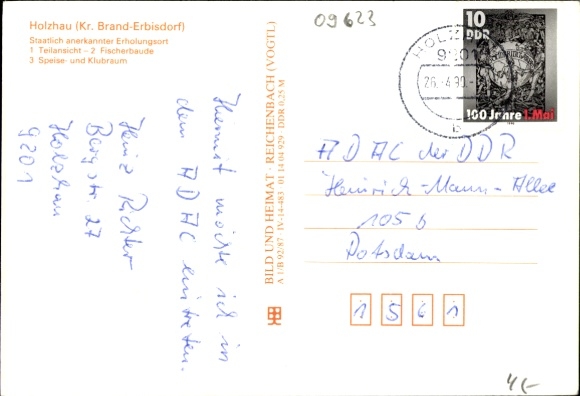 Holzhau (Kr. Brand-Erbisdorf)
Staatlich anerkannter Erholungsort
1 Teilansicht - 2 Fischerbaude
3 Speise- und Klubraum
09623
Hiermit möchte ich in
dem ADAC eintreten.
Heinz Richter
Bergstr. 27
Holzhau
9201
BILD UND HEIMAT · REICHENBACH (VOGTL)
A 1/B 92/87 · IV-14-483 01 14 04 929 DDR 0,25 M
HOLZHAU
9201
26.-4.90.-
b
10
DDR
100 Jahre 1. Mai
ADAC der DDR
Heinrich-Mann-Allee
105 b
Potsdam
1561
4,-